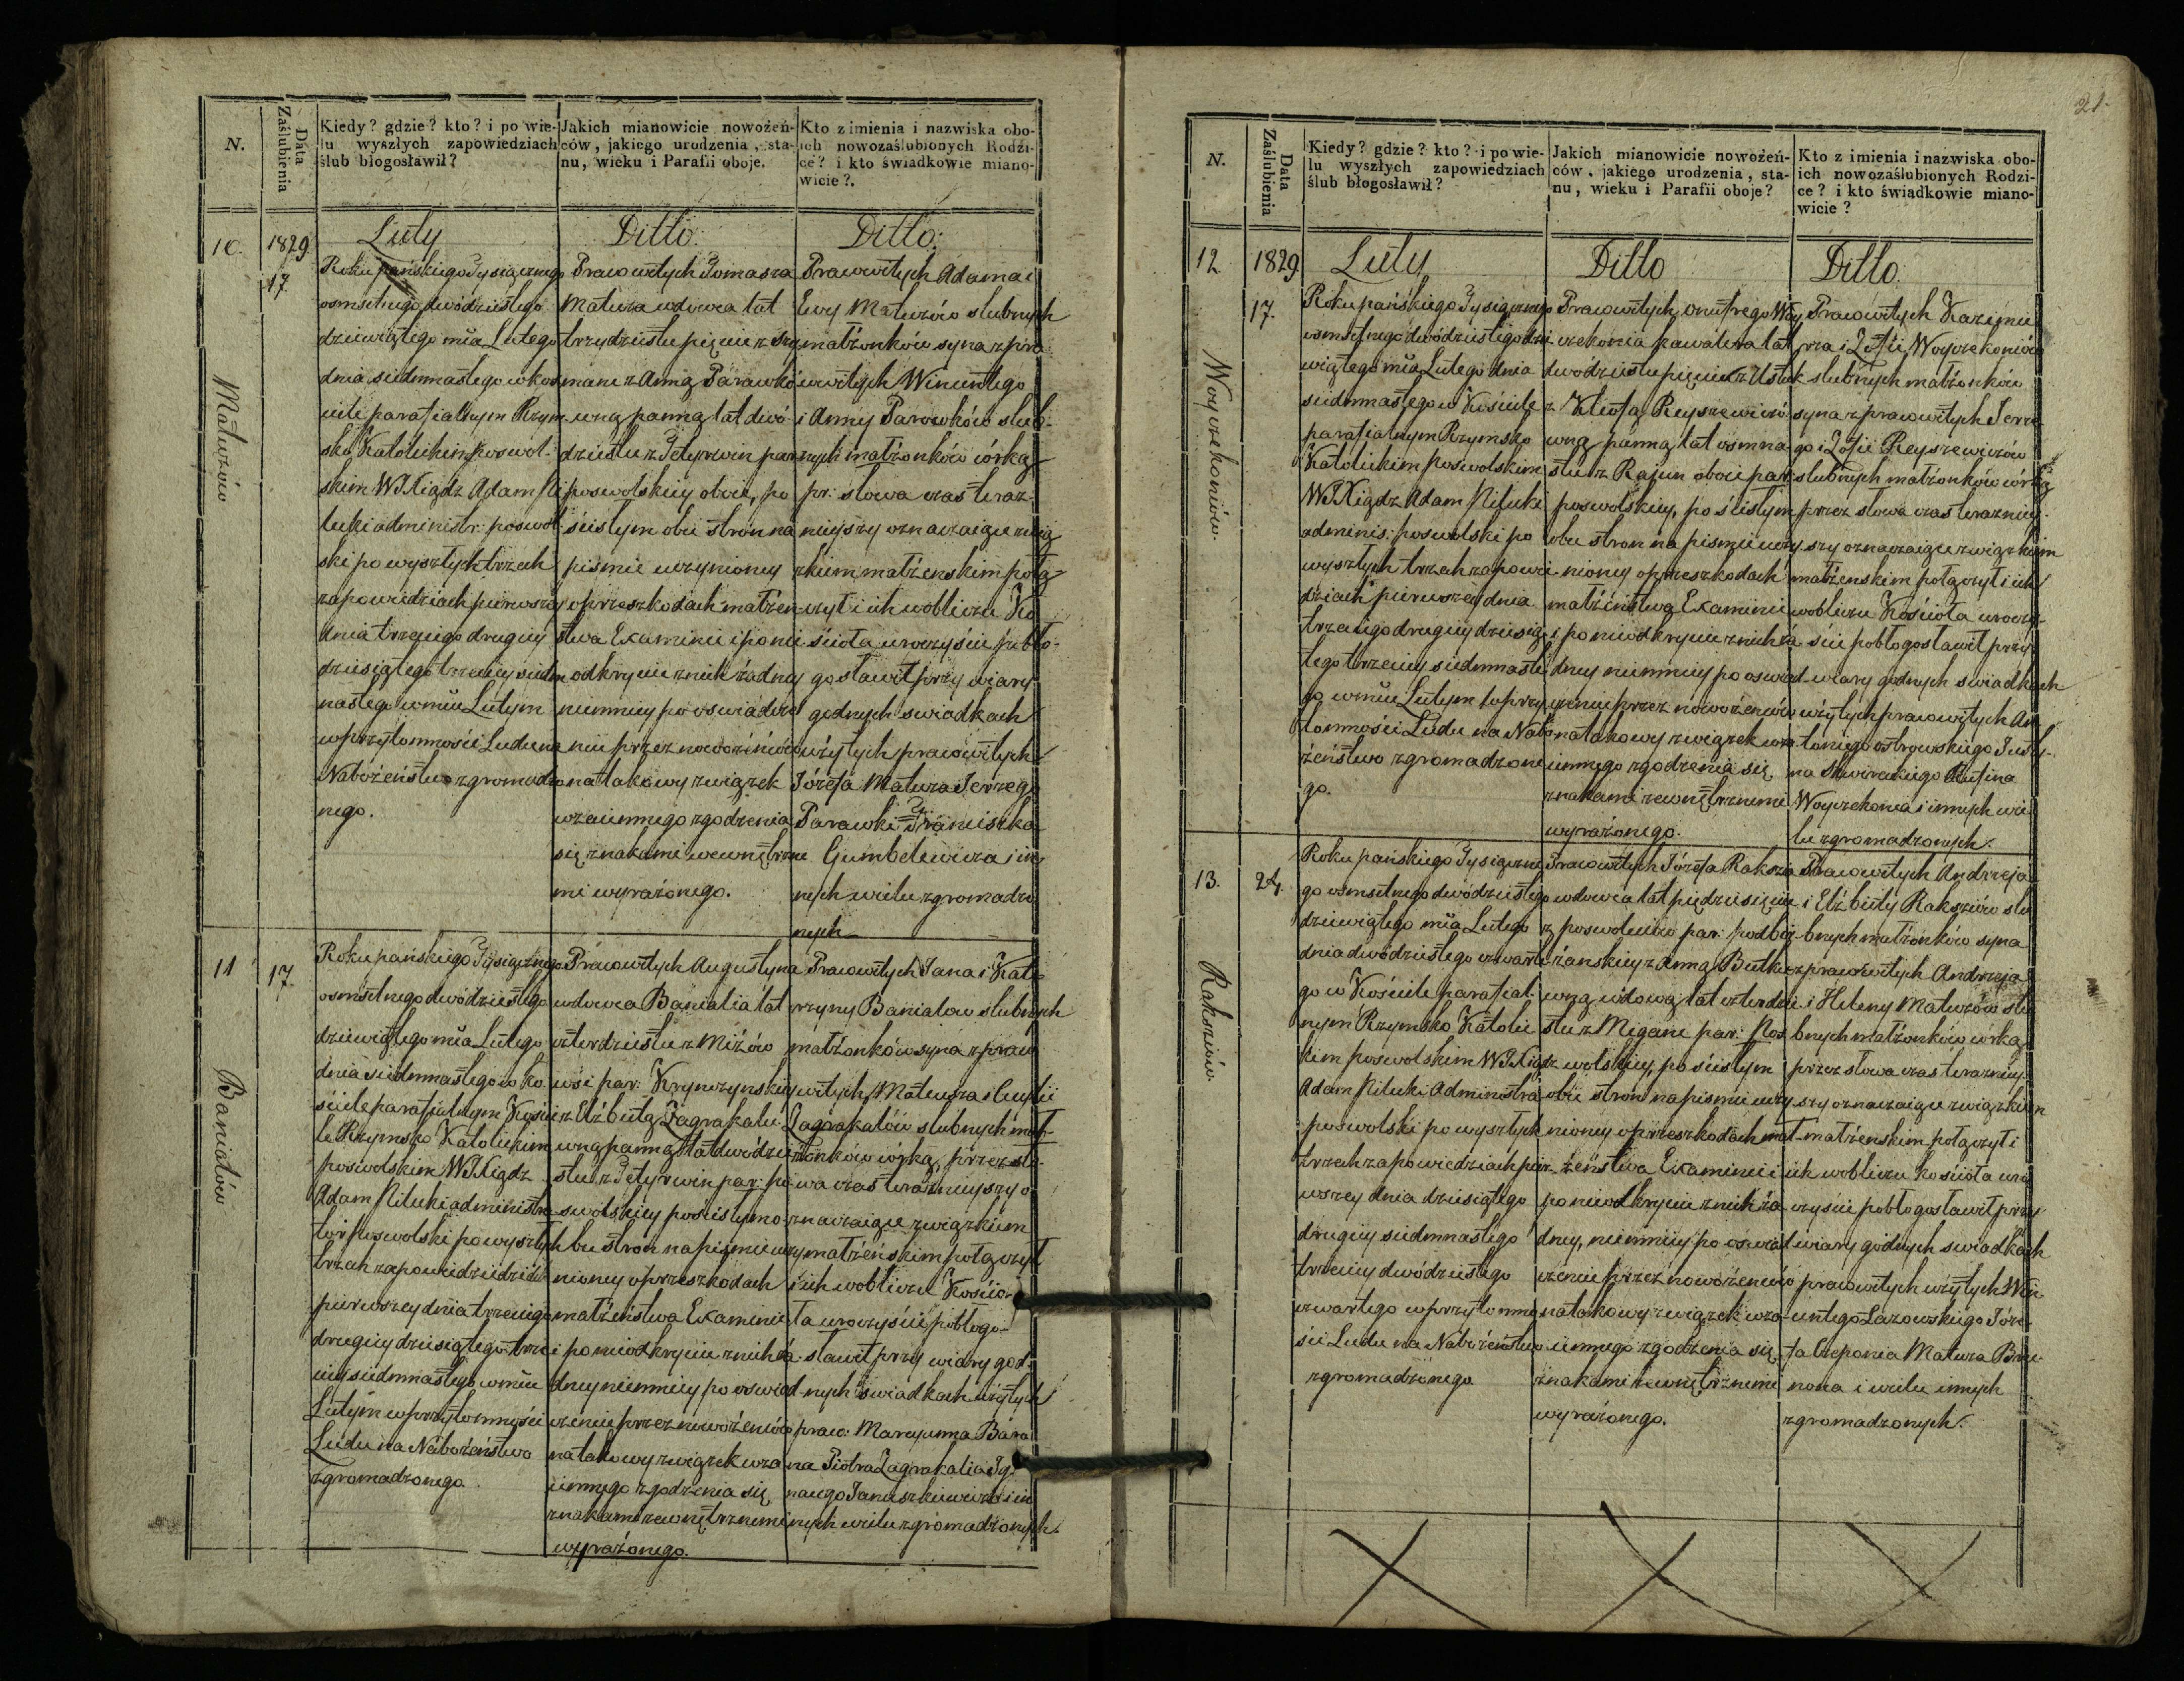 N.
Data Zaślubienia
Kiedy? gdzie? kto? i po wie-
lu wyszłych zapowiedziach
ślub błogosławił?
Jakich mianowicie nowożeń-
ców, jakiego urodzenia, sta-
nu, wieku i Parafii oboje.
Kto z imienia i nazwiska obo-
ich nowozaślubionych Rodzi-
ce? i kto świadkowie miano-
wicie?
10.
1829
17.
Matuzów
Luty
Roku pańskiego Tysiącznego
osmsetnego dwódziestego
dziewiątego mca Lutego
dnia siedmnastego w koś
ciele parafialnym Rzym
sko Katolickim poswol-
skim WX Xiądz Adam Ni
lucki administr: poswol
ski po wyszłych trzech
zapowiedziach pierwszey
dnia trzeciego drugiey
dziesiątego trzeciey siedm
nastego w mcu Lutym
w przytomnosci Ludu na
Nabożeństwo zgromadzo
nego.
Ditto:
Pracowitych Tomasza
Matuza wdowca lat
trzydziestu pięciu z Szy
manc z Anną Parawko
wną panną lat dwó
dziestu z Petyrwin par
poswolskiey oboie, po
ścisłym obu stron na
pismie uczynioney
o przeszkodach małżeń
stwa Examinie i po nie
odkryciu znich żadney
niemniey po oswiadcze
niu przez nowożeńców
na takowy związek
wzaiemnego zgodzenia
się znakami zewnętrzne
mi wyrażonego.
Ditto:
Pracowitych Adama i
Ewy Matuzów slubnych
małżonków syna z pra
cowitych Winentego
i Anny Parowków slub-
nych małżonków córką
pr: słowa czas teraz-
nieyszy oznaczaiące związ
kiem małżenskim połą-
czył i ich w obliczu Ko
scioła uroczyscie pobło-
gosławił przy wiary
godnych swiadkach
użytych pracowitych
Józefa Matuza Jerzego
Parawki Franciszka
Gumbelewicza i in
nych wielu zgromadzo
nych
11
17.
Baniałów
Roku pańskiego Tysiącznego
osmsetnego dwódziestego
dziewiątego mca Lutego
dnia siedmnastego w ko
sciele parafialnym Kości
le Rzymsko Katolickim
poswolskim WX Xiądz
Adam Nilucki administra
tor Poswolski po wyszłych
trzech zapowiedziedziach
pierwszey dnia trzeciego
drugiey dziesiątego trze
ciey siedmnastego w mcu
Lutym w przytomnosci
Ludu na Nabożeństwo
zgromadzonego.
Pracowitych Augustyna
wdowca Banialia lat
czterdziestu z Miżów
wsi par: Krynczynskiey
z Elżbietą Zagrakalu
wną panną lat dwódzie
stu z Petyrwin par: po
swolskiey po scisłym o
bu stron na pismie uczy
nioney o przeszkodach
małżeństwa Examinie
i po nieodkryciu znich ża
dney niemniey po oswiad
czeniu przez nowożeńców
na takowy związek wza
iemnego zgodzenia się
znakami zewnętrznemi
wyrażonego.
Pracowitych Jana i Kata
rzyny Banialow slubnych
małżonków syna z praco
witych Mateusza i Cecylii
Zagrakałów slubnych mał-
żonków córką, przez sło-
wa czas teraznieyszy o
znaczaiące związkiem
małżeńskim połączył
i ich w obliczu Kościo
ła uroczyscie pobłogo-
sławił przy wiary god
nych swiadkach użytych
praco: Marcyanna Bara
na Piotra Zagrakalia Ig
nacego Januszkiewicza i in
nych wielu zgromadzonych.
21.
N.
Data Zaślubienia
Kiedy? gdzie? kto? i po wie-
lu wyszłych zapowiedziach
ślub błogosławił?
Jakich mianowicie nowożeń-
ców, jakiego urodzenia, sta-
nu, wieku i Parafii oboje?
Kto z imienia i nazwiska obo-
ich nowozaślubionych Rodzi-
ce? i kto świadkowie miano-
wicie?
12
1829
17.
Woyzekoniów.
Luty
Roku pańskiego Tysiącznego
osmsetnego dwódziestego dzie
wiątego mca Lutego dnia
siedmnastego w Kościele
parafialnym Rzymsko
Katolickim poswolskim
WX Xiądz Adam Nilucki
adminis: poswolski po
wyszłych trzech zapowie
dziach pierwszey dnia
trzeciego drugiey dziesią
tego trzeciey siedmnaste
go w mcu Lutym w przy
tomności Ludu na Nabo
żeństwo zgromadzone
go.
Ditto
Pracowitych Onufrego Woy
czekonia kawalera lat
dwódziestu pięciu z Ustuk
z Teklą Reyszewiczó
wną panną lat osmna
stu z Rajun oboie par:
poswolskiey, po ścisłym
obu stron na pismie uczy
nioney o przeszkodach
małżeństwa Examinie
i po nieodkryciu znich ża
dney niemniey po oswiad
czeniu przez nowożeńców
na takowy związek wza
iemnego zgodzenia się
znakami zewnętrznemi
wyrażonego.
Ditto:
Pracowitych Kazimie
rza i Zofii Woyzekoniów
slubnych małżonków
syna z pracowitych Jerze
go i Zofii Reyszewiczów
slubnych małżonków córką
przez słowa czas terazniey
szy oznaczaiące związkiem
małżenskim połączył i ich
w obliczu Kościoła uroczy
scie pobłogosławił przy
wiary godnych swiadkach
użytych pracowitych An
toniego ostrowskiego Justy-
na Skwireckiego Rufina
Woyzekonia i innych wie
lu zgromadzonych.
13.
24.
Rakszów.
Roku pańskiego Tysiączne
go osmsetnego dwódziestego
dziewiątego mca Lutego
dnia dwódziestego czwarte
go w Kościele parafial
nym Rzymsko Katolic
kim poswolskim WX Xiądz
Adam Nilucki Administra
poswolski po wyszłych
trzech zapowiedziach pier
wszey dnia dziesiątego
drugiey siedmnastego
trzeciey dwódziestego
czwartego w przytomno
ści Ludu na Nabożeństwo
zgromadzonego
Pracowitych Józefa Raksza
wdowca lat pięćdziesięciu
z poswoleciów par: podbir
żanskiey z Anną Butkie
wną wdową lat czterdzie
stu z Migane par: Pos
wolskiey, po ścisłym
obu stron na pismie uczy
nioney o przeszkodach mał
żeństwa Examinie i
po nieodkryciu znich ża
dney, niemniey po oswiad
czeniu przez nowożeńców
na takowy związek wza
iemnego zgodzenia się
znakami zewnętrznemi
wyrażonego.
Pracowitych Andrzeja
i Elżbiety Rakszów slu
bnych małżonków syna
z pracowitych Andrzeja
i Heleny Matuzów slu
bnych małżonków córką
przez słowa czas terazniey
szy oznaczaiące związkiem
małżenskim połączył i
ich w obliczu kościoła uro
czyscie pobłogosławił przy
wiary godnych swiadkach
pracowitych użytych Win
centego Lazowskiego Józe
fa Czeponia Matuza Bru
nona i wielu innych
zgromadzonych.